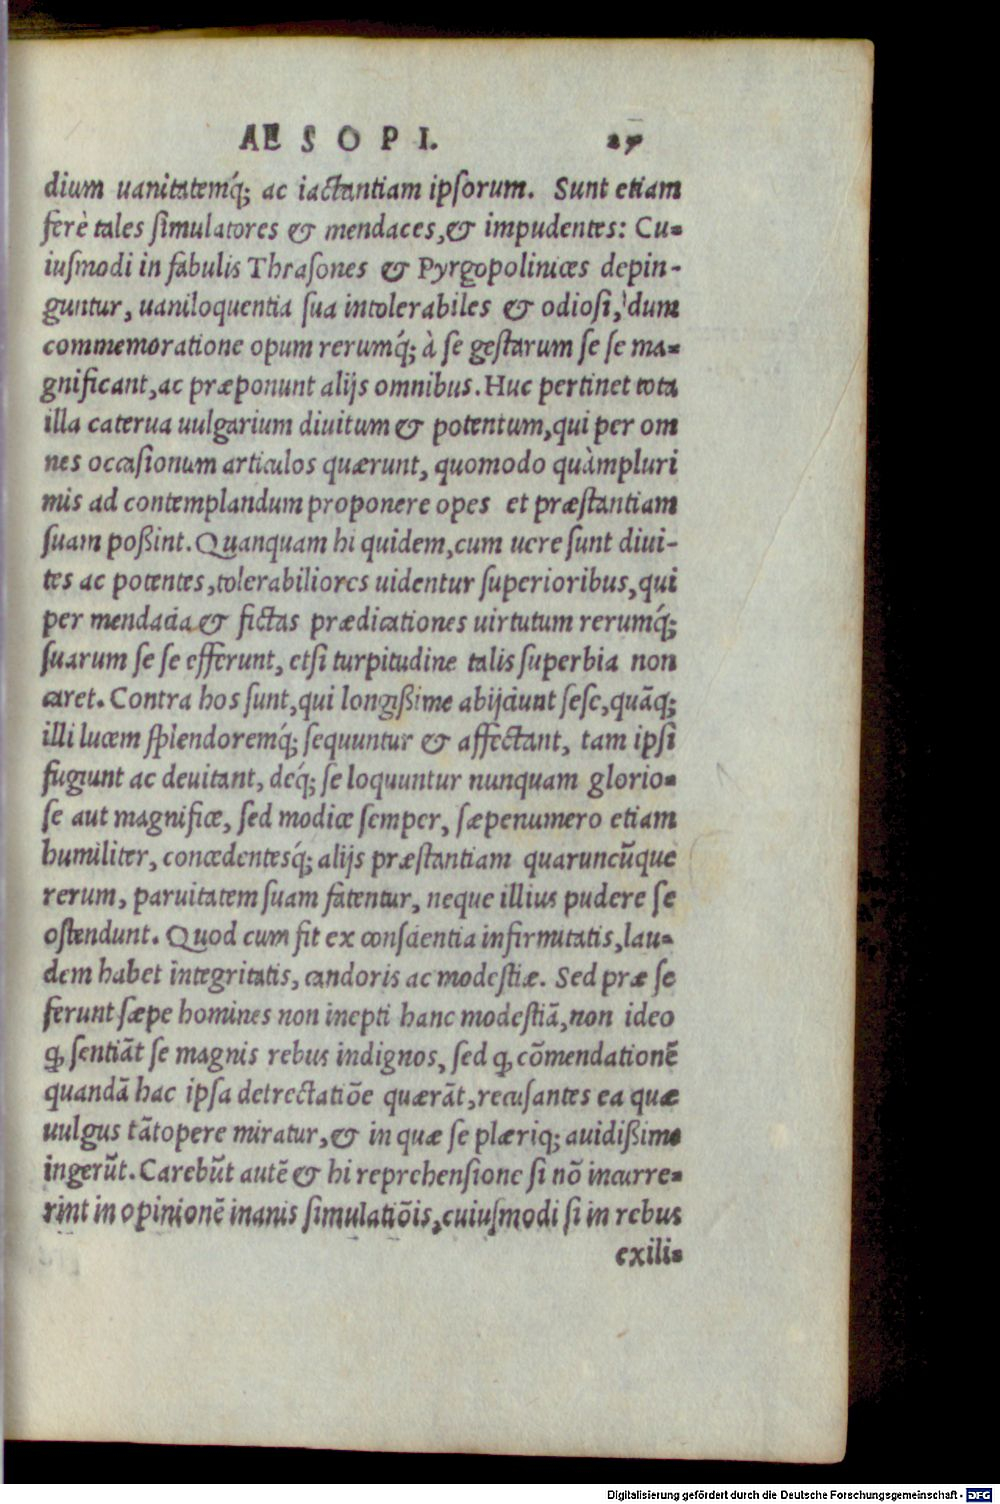 AESOPI. 27
dium uanitatemq́; ac iactantiam ipſorum. Sunt etiam
ferè tales ſimulatores & mendaces, & impudentes: Cu-
iuſmodi in fabulis Thraſones & Pyrgopolinices depin-
guntur, uaniloquentia ſua intolerabiles & odioſi, dum
commemoratione opum rerumq́; à ſe geſtarum ſe ſe ma-
gnificant, ac præponunt alijs omnibus. Huc pertinet tota
illa caterua uulgarium diuitum & potentum, qui per om
nes occaſionum articulos quærunt, quomodo quàmpluri
mis ad contemplandum proponere opes et præſtantiam
ſuam poßint. Quanquam hi quidem, cum uere ſunt diui-
tes ac potentes, tolerabiliores uidentur ſuperioribus, qui
per mendacia & fictas prædicationes uirtutum rerumq́;
ſuarum ſe ſe efferunt, etſi turpitudine talis ſuperbia non
caret. Contra hos ſunt, qui longißime abijciunt ſeſe, quāq;
illi lucem ſplendoremq́; ſequuntur & affectant, tam ipſi
fugiunt ac deuitant, deq́; ſe loquuntur nunquam glorio-
ſe aut magnifice, ſed modice ſemper, ſæpenumero etiam
humiliter, concedentesq́; alijs præſtantiam quaruncũque
rerum, paruitatem ſuam fatentur, neque illius pudere ſe
oſtendunt. Quod cum fit ex conſcientia infirmitatis, lau-
dem habet integritatis, candoris ac modeſtiæ. Sed præ ſe
ferunt ſæpe homines non inepti hanc modeſtiā, non ideo
ꝙ ſentiāt ſe magnis rebus indignos, ſed ꝙ cōmendationē
quandā hac ipſa detrectatiōe quærāt, recuſantes ea quæ
uulgus tātopere miratur, & in quæ ſe plæriq; auidißime
ingerũt. Carebũt autē & hi reprehenſione ſi nō incurre-
rint in opinionē inanis ſimulatiōis, cuiuſmodi ſi in rebus
exili-
Digitalisierung gefördert durch die Deutsche Forschungsgemeinschaft - DFG